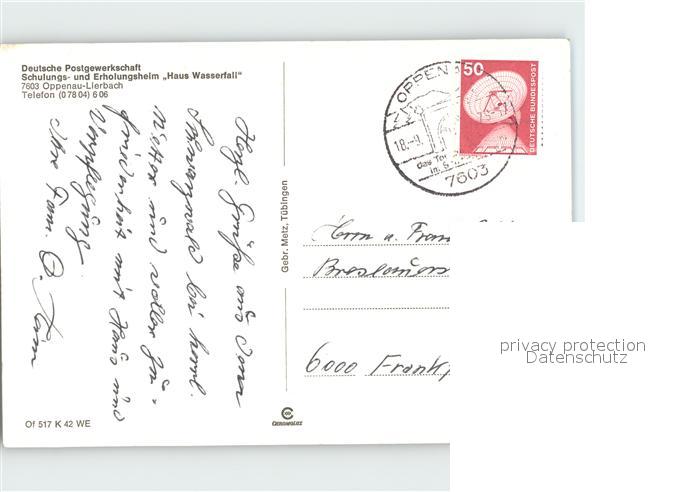 Deutsche Postgewerkschaft
Schulungs- und Erholungsheim „Haus Wasserfall"
7603 Oppenau-Lierbach
Telefon (07804) 606
Herzl. Grüße aus dem
Schwarzwald bei herrl.
Wetter und voller Zu-
friedenheit mit Haus und
Verpflegung
Ihre Fam.
Of 517 K 42 WE
Gebr. Metz, Tübingen
CHROMOLUX
OPPENAU
18.-9
das Tor
7603
50
DEUTSCHE BUNDESPOST
Herrn u. Frau
Breslauers
6000 Frankf
privacy protection
Datenschutz